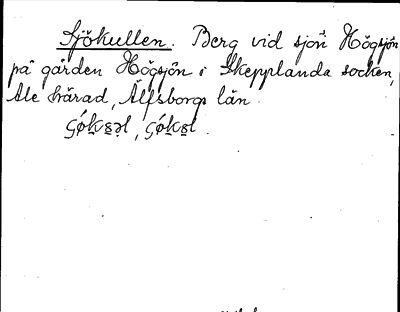 Sjökullen. Berg vid sjön Högsjön
på gården Högsjön i Skepplanda socken,
Ale härad, Älfsborgs län.